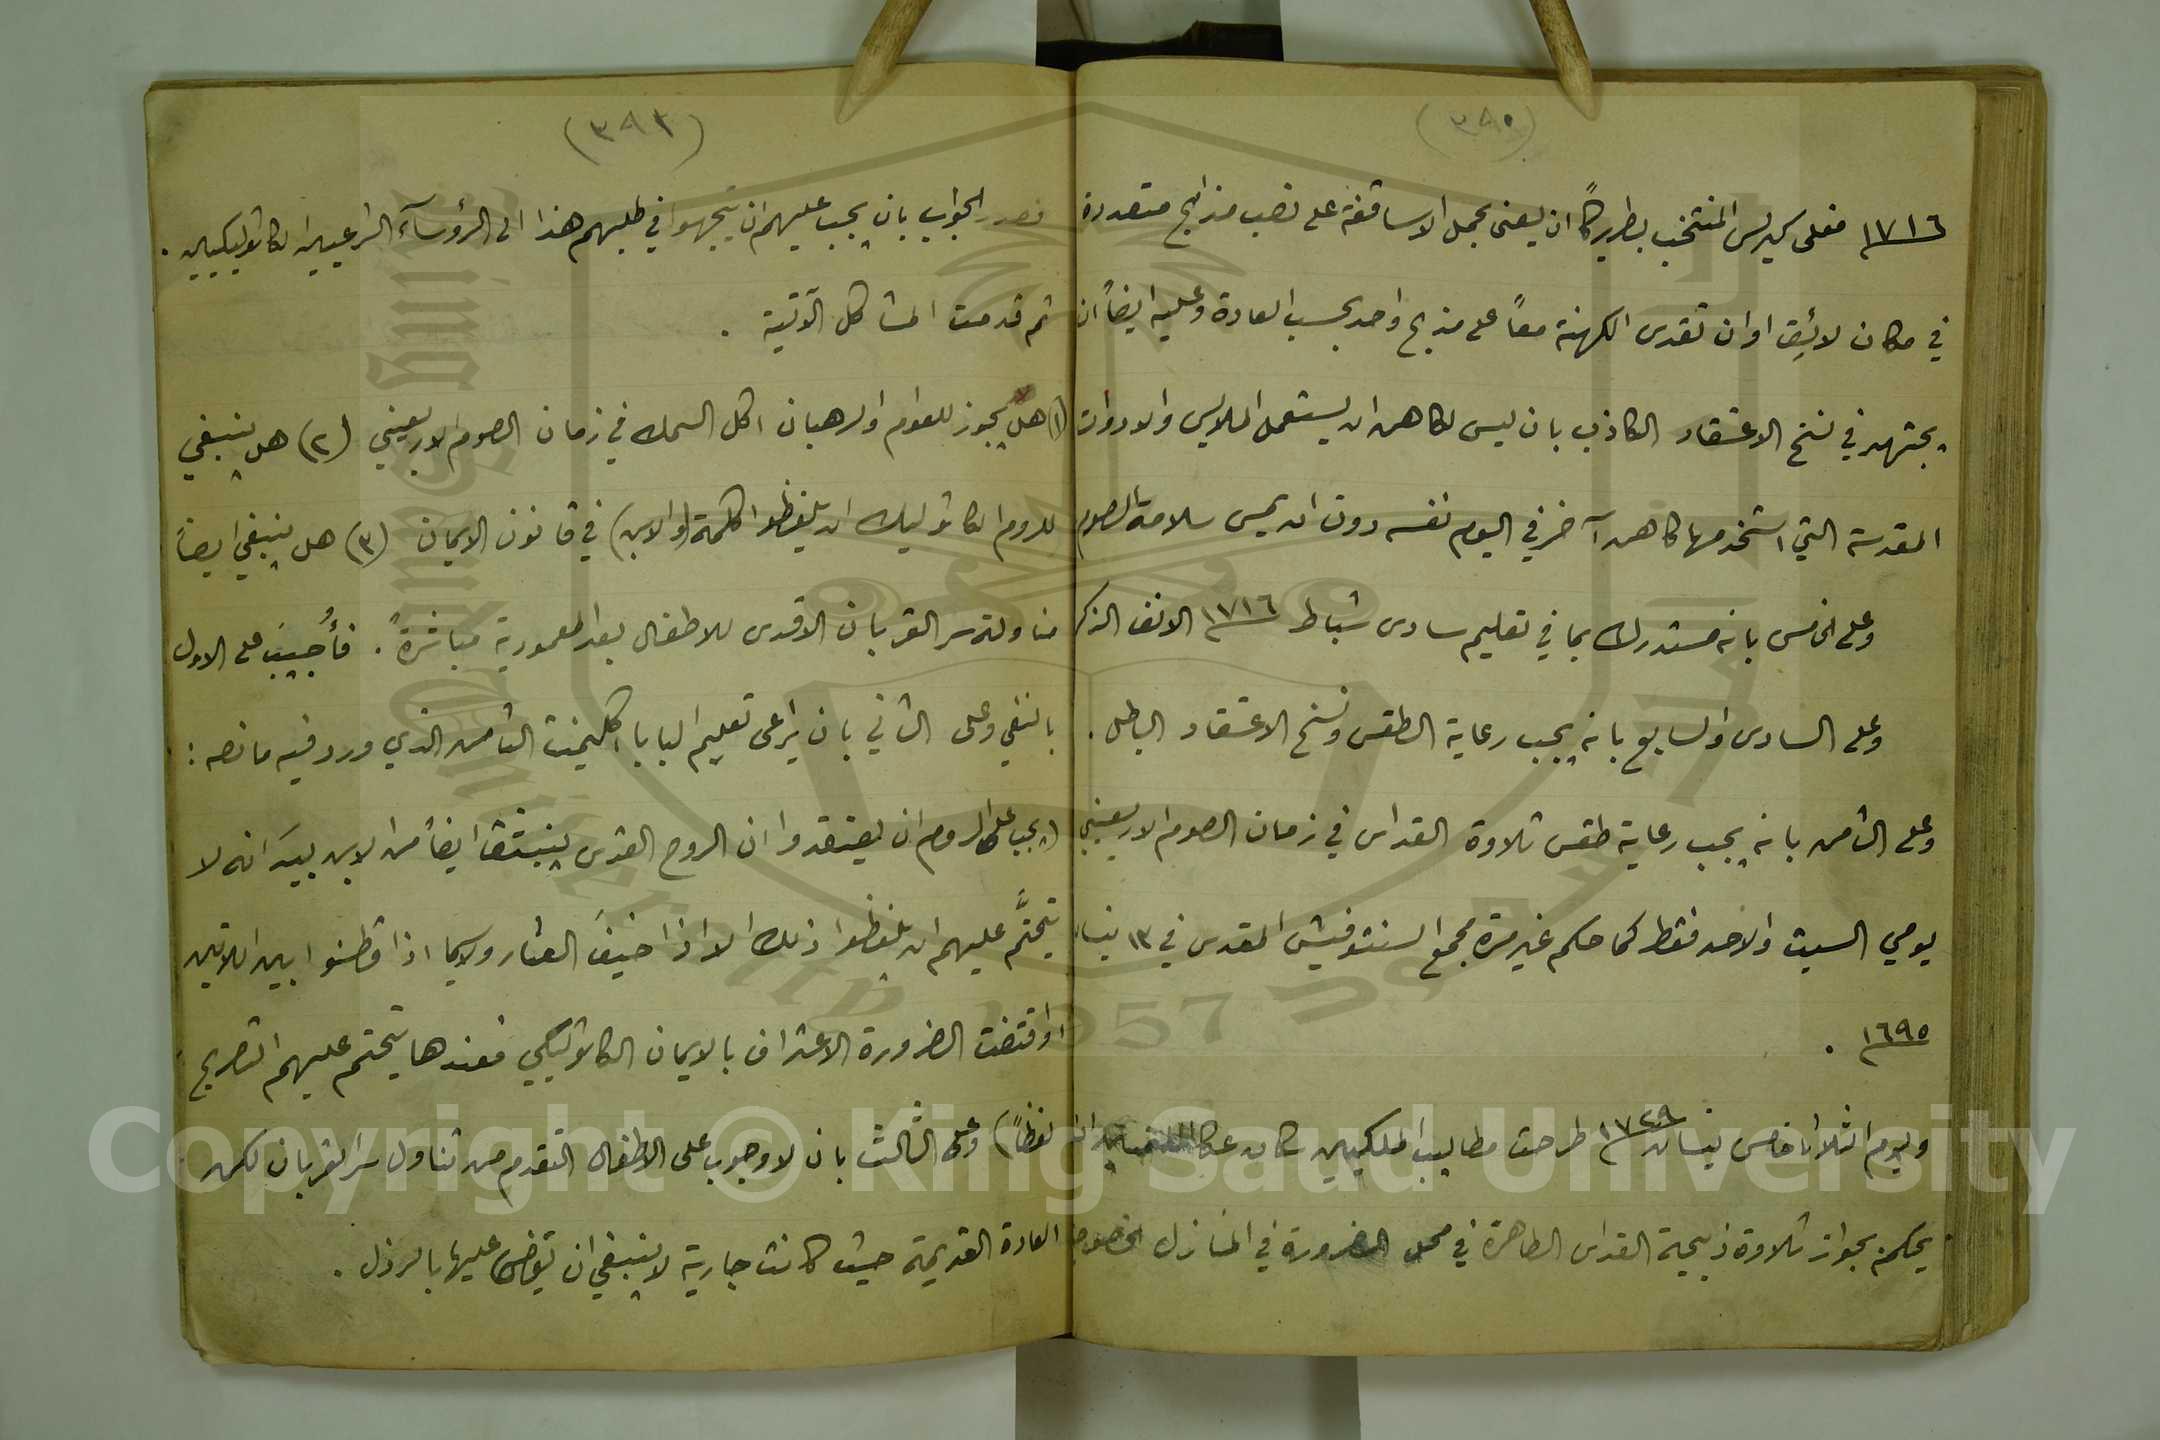 (٣٩٠)
١٧١٦ فعلى كيرلس المنتخب بطريركاً ان يعنى بحمل الاساقفة على نصب مذابح متعددة
في مكان لائق او ان تقدس الكهنة معاً على مذبح واحد بحسب العادة وعليه ايضاً ان
يجتهد في نسخ الاعتقاد الكاذب بان ليس لكاهن ان يستعمل الملابس والادوات
المقدسة التي استخدمها كاهن آخر في اليوم نفسه دون ان يمس سلامة الصوم
وعلى الخامس بانه مستدرك بما في تعليم سادس شباط ١٧١٦ الانف الذكر
وعلى السادس والسابع بانه يجب رعاية الطقس ونسخ الاعتقاد الباطل .
وعلى الثامن بانه يجب رعاية طقس تلاوة القداس في زمان الصوم الاربعيني
يومي السبت والاحد فقط كما حكم غير مرة مجمع السنتوفيش المقدس في ١٣ نيسان
١٦٩٥ .
ويوم الثلاثا خامس نيسان ١٧٢٩ طرحت مطاليب الملكيين سكان عكا
يحكم بجواز تلاوة ذبيحة القداس الطاهرة في محل الضرورة في المنازل الخصوصية
(٣٩١)
فصدر الجواب بان يجب عليهم ان يتجهوا في طلبهم هذا الى الرؤسآء الشرعيين الكاثوليكيين .
ثم قدمت المشاكل الآتية .
(١) هل يجوز للعوام والرهبان اكل السمك في زمان الصوم الاربعيني (٢) هل ينبغي
للروم الكاثوليك ان يلفظوا كلمة (والابن) في قانون الايمان (٣) هل ينبغي ايضاً
مناولة سر القربان الاقدس للاطفال بعد المعمورية مباشرةً . فأُجيبَ على الاول
بالنفي وعلى الثاني بان يُراعى تعليم البابا اكليمنت الثامن الذي ورد فيه ما نصه :
(يجب على الروم ان يعتقدوا ان الروح القدس ينبثق ايضاً من الابن بيدَ انه لا
يتحتَّم عليهم ان يلفظوا ذلك الا اذا خيفَ العثار ولاسيما اذا قطنوا بين اللاتين
او اقتضت الضرورة الاعتراف بالايمان الكاثوليكي فعندها يتحتم عليهم التصريح
لفظاً) وعلى الثالث بان لا وجوب على الاطفال التقدم من تناول سر القربان لكن
العادة القديمة حيث كانت جارية لا ينبغي ان يقضى عليها بالرذل .
Copyright © King Saud University
1957